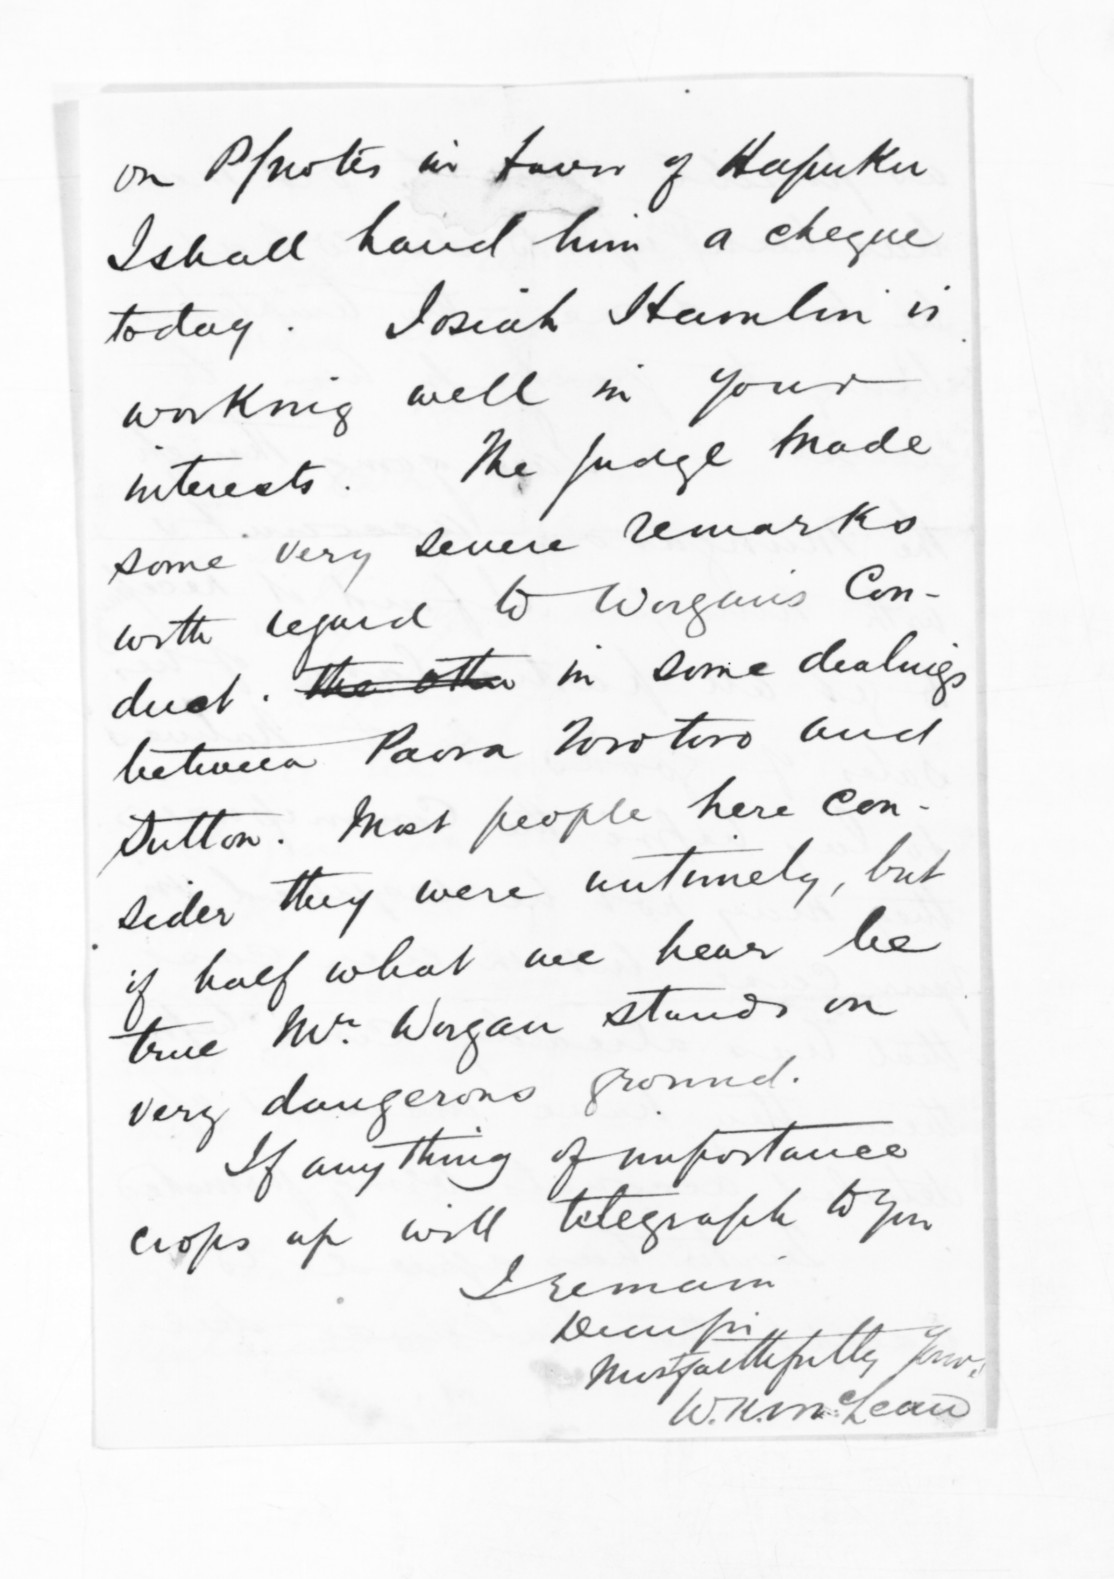 on P/notes in favor of Hapuku
I shall hand him a cheque
today. Josiah Hamlin is
working well in your
interests. The Judge made
some very severe remarks
with regard to Worgan's Con-
duct. the other in some dealings
between Paora Torotoro and
Sutton. Most people here con-
sider they were untimely, but
if half what we hear be
true Mr. Worgan stands on
very dangerous ground.
If anything of importance
crops up will telegraph to you
I remain
Dear Sir
Most faithfully Yours
W. K. McLean